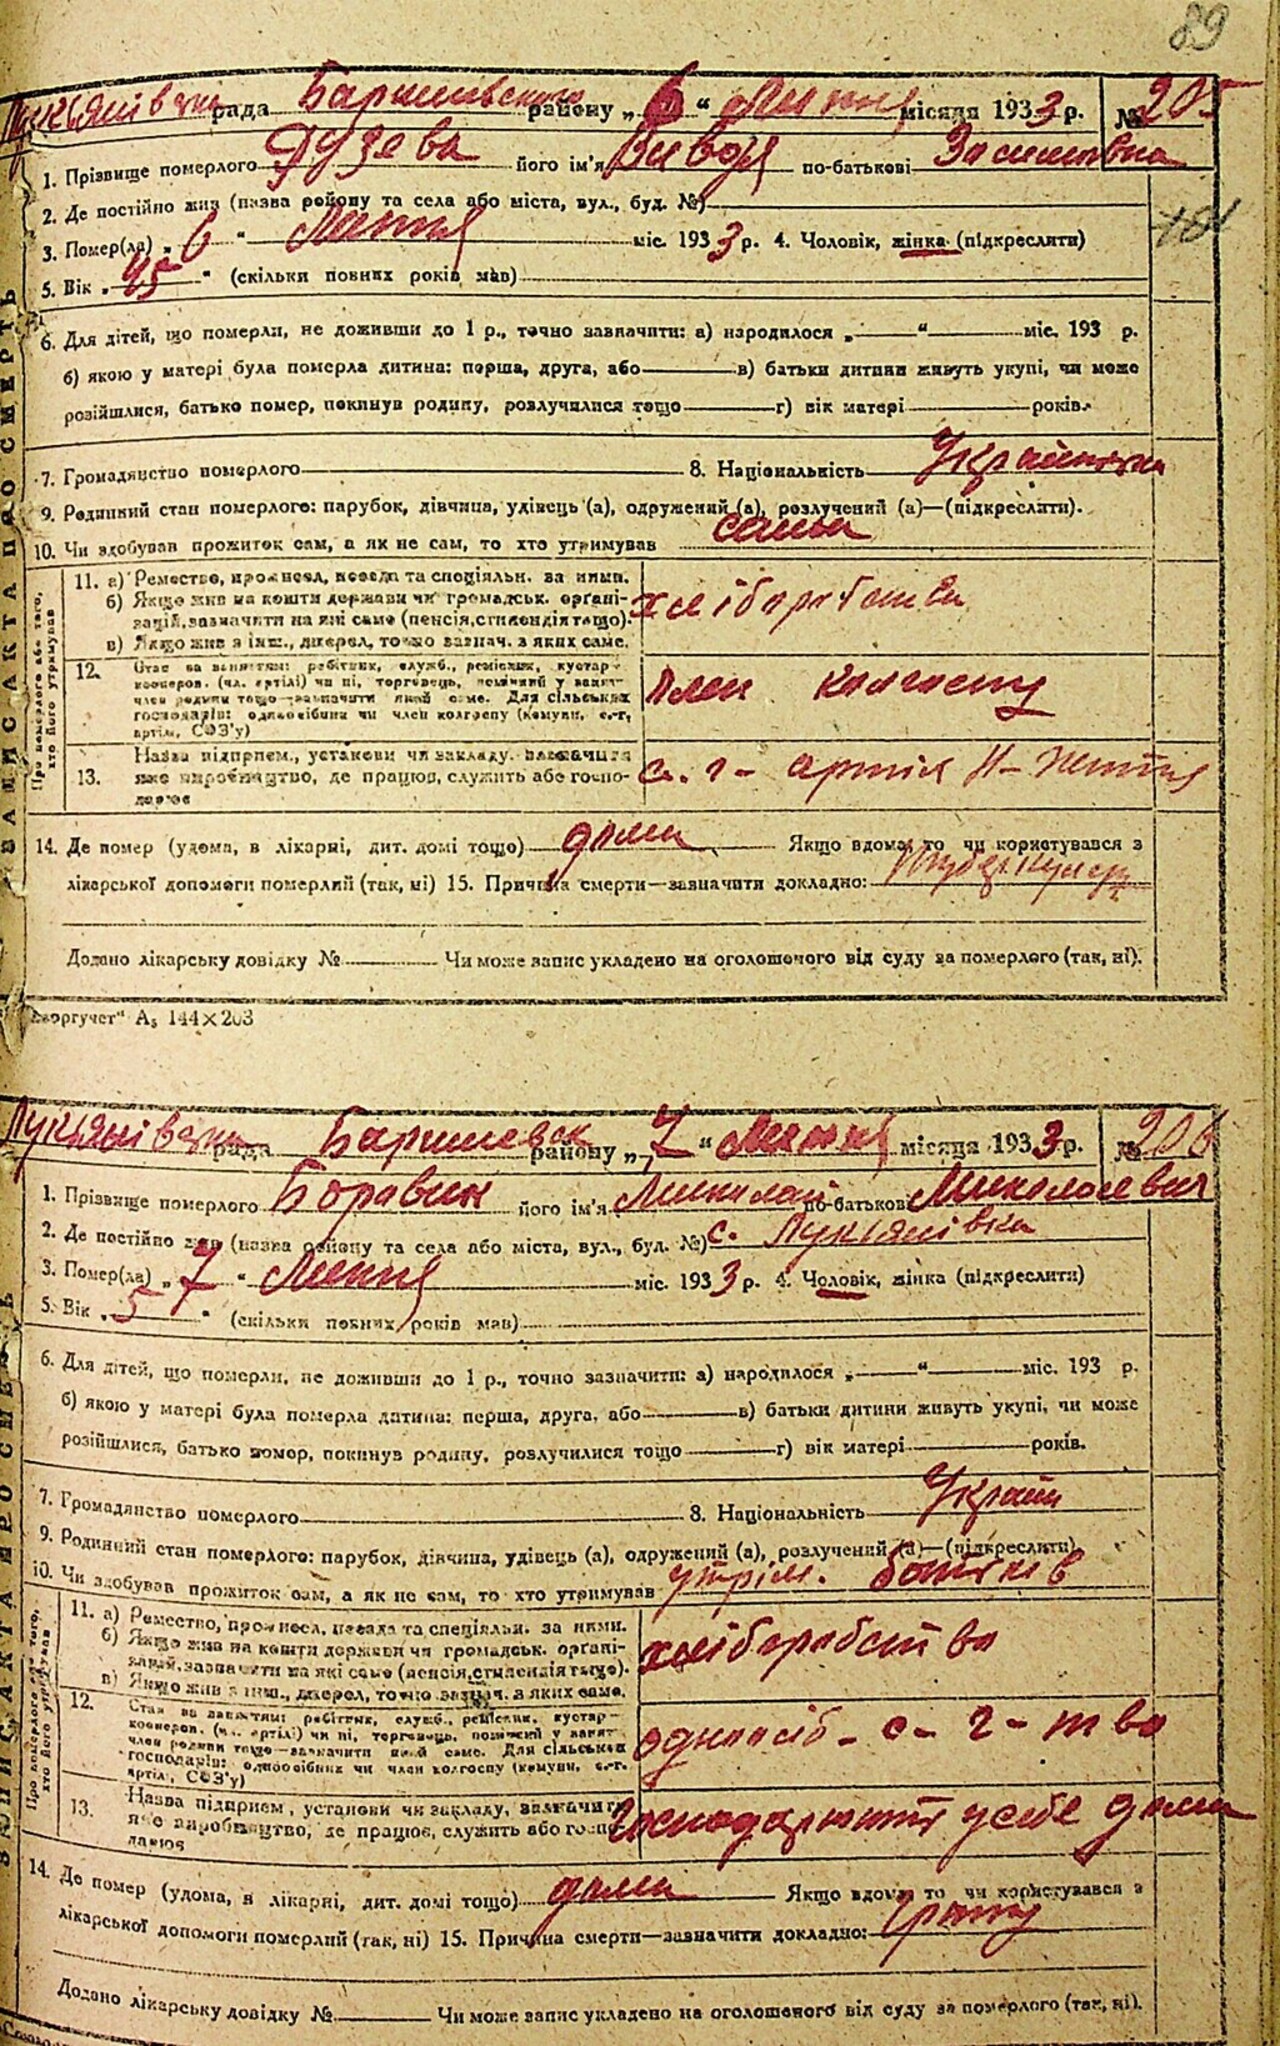 89
Лукьянівська рада Баришевського району „6“ Липня місяця 1933 р. № 205
1. Прізвище померлого його ім'я по-батькові
2. Де постійно жив (назва району та села або міста, вул., буд. №)
3. Помер(ла) „6“ Липня міс. 1933 р. 4. Чоловік, жінка (підкреслити)
5. Вік „ “ (скільки повних років мав)
6. Для дітей, що померли, не доживши до 1 р., точно зазначити: а) народилося „ “ міс. 193 р.
б) якою у матері була померла дитина: перша, друга, або в) батьки дитини живуть укупі, чи може
розійшлися, батько помер, покинув родину, розлучилися тощо г) вік матері років.
7. Громадянство померлого 8. Національність Українка
9. Родинний стан померлого: парубок, дівчина, удівець (а), одружений (а), розлучений (а)—(підкреслити).
10. Чи здобував прожиток сам, а як не сам, то хто утримував сама
11. а) Ремество, промисел, посада та спеціяльн. за ними.
б) Якщо жив на кошти держави чи громадськ. орґані-
зацій, зазначити на які саме (пенсія, стипендія тощо).
в) Якщо жив з інш., джерел, точно зазнач. з яких саме.
хліборобство
12. Стан за заняттям: робітник, служб., ремісник, кустар-
кооперов. (чл. артілі) чи ні, торговець, помічний у занят.
член родини тощо—зазначити який саме. Для сільських
господарів: одноосібник чи член колгоспу (комуни, с.-г.
артіл, СОЗ'у)
член колгоспу
13. Назва підприєм., установи чи закладу, зазначити
яке виробництво, де працює, служить або госпо-
дарює
с. г - артіль Н - Життя
14. Де помер (удома, в лікарні, дит. домі тощо) дома Якщо вдома, то чи користувався з
лікарської допомоги померлий (так, ні) 15. Причина смерти—зазначити докладно:
Додано лікарську довідку № Чи може запис укладено на оголошеного від суду за померлого (так, ні).
ЗАПИС АКТА ПРО СМЕРТЬ
Про померлого або того, хто його утримував
„Союзоргучет“ А₅ 144×203
Лукьянівська рада Баришевськ району „7“ Липня місяця 1933 р. № 206
1. Прізвище померлого Боровик його ім'я Миколай по-батькові Миколаєвич
2. Де постійно жив (назва району та села або міста, вул., буд. №) с. Лукьянівка
3. Помер(ла) „7“ Липня міс. 1933 р. 4. Чоловік, жінка (підкреслити)
5. Вік „5“ (скільки повних років мав)
6. Для дітей, що померли, не доживши до 1 р., точно зазначити: а) народилося „ “ міс. 193 р.
б) якою у матері була померла дитина: перша, друга, або в) батьки дитини живуть укупі, чи може
розійшлися, батько помер, покинув родину, розлучилися тощо г) вік матері років.
7. Громадянство померлого 8. Національність Україн
9. Родинний стан померлого: парубок, дівчина, удівець (а), одружений (а), розлучений (а)—(підкреслити).
10. Чи здобував прожиток сам, а як не сам, то хто утримував утрім. батьків
11. а) Ремество, промисел, посада та спеціяльн. за ними.
б) Якщо жив на кошти держави чи громадськ. орґані-
зацій, зазначити на які саме (пенсія, стипендія тощо).
в) Якщо жив з інш., джерел, точно зазнач. з яких саме.
хліборобство
12. Стан за заняттям: робітник, служб., ремісник, кустар-
кооперов. (чл. артілі) чи ні, торговець, помічний у занят.
член родини тощо—зазначити який саме. Для сільських
господарів: одноосібник чи член колгоспу (комуни, с.-г.
артіл, СОЗ'у)
одноосіб - с - г - тво
13. Назва підприєм, установи чи закладу, зазначити
яке виробництво, де працює, служить або госпо-
дарює
господарюють у себе дома
14. Де помер (удома, в лікарні, дит. домі тощо) дома Якщо вдома, то чи користувався з
лікарської допомоги померлий (так, ні) 15. Причина смерти—зазначити докладно:
Додано лікарську довідку № Чи може запис укладено на оголошеного від суду за померлого (так, ні).
ЗАПИС АКТА ПРО СМЕРТЬ
Про померлого або того, хто його утримував